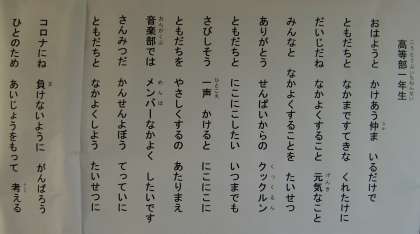 高等部一年生
おはようと かけあう仲ま いるだけで
ともだちと なかまですてきな くれたけに
だいじだね なかよくすること 元気なこと
みんなと なかよくすることを たいせつ
ありがとう せんぱいからの クックルン
ともだちと にこにこしたい いつまでも
さびしそう 一声 かけると にこにこに
ともだちを やさしくするの あたりまえ
音楽部では メンバーなかよく したいです
さんみつだ かんせんよぼう てっていに
ともだちと なかよくしよう たいせつに
コロナにね 負けないように がんばろう
ひとのため あいじょうをもって 考える